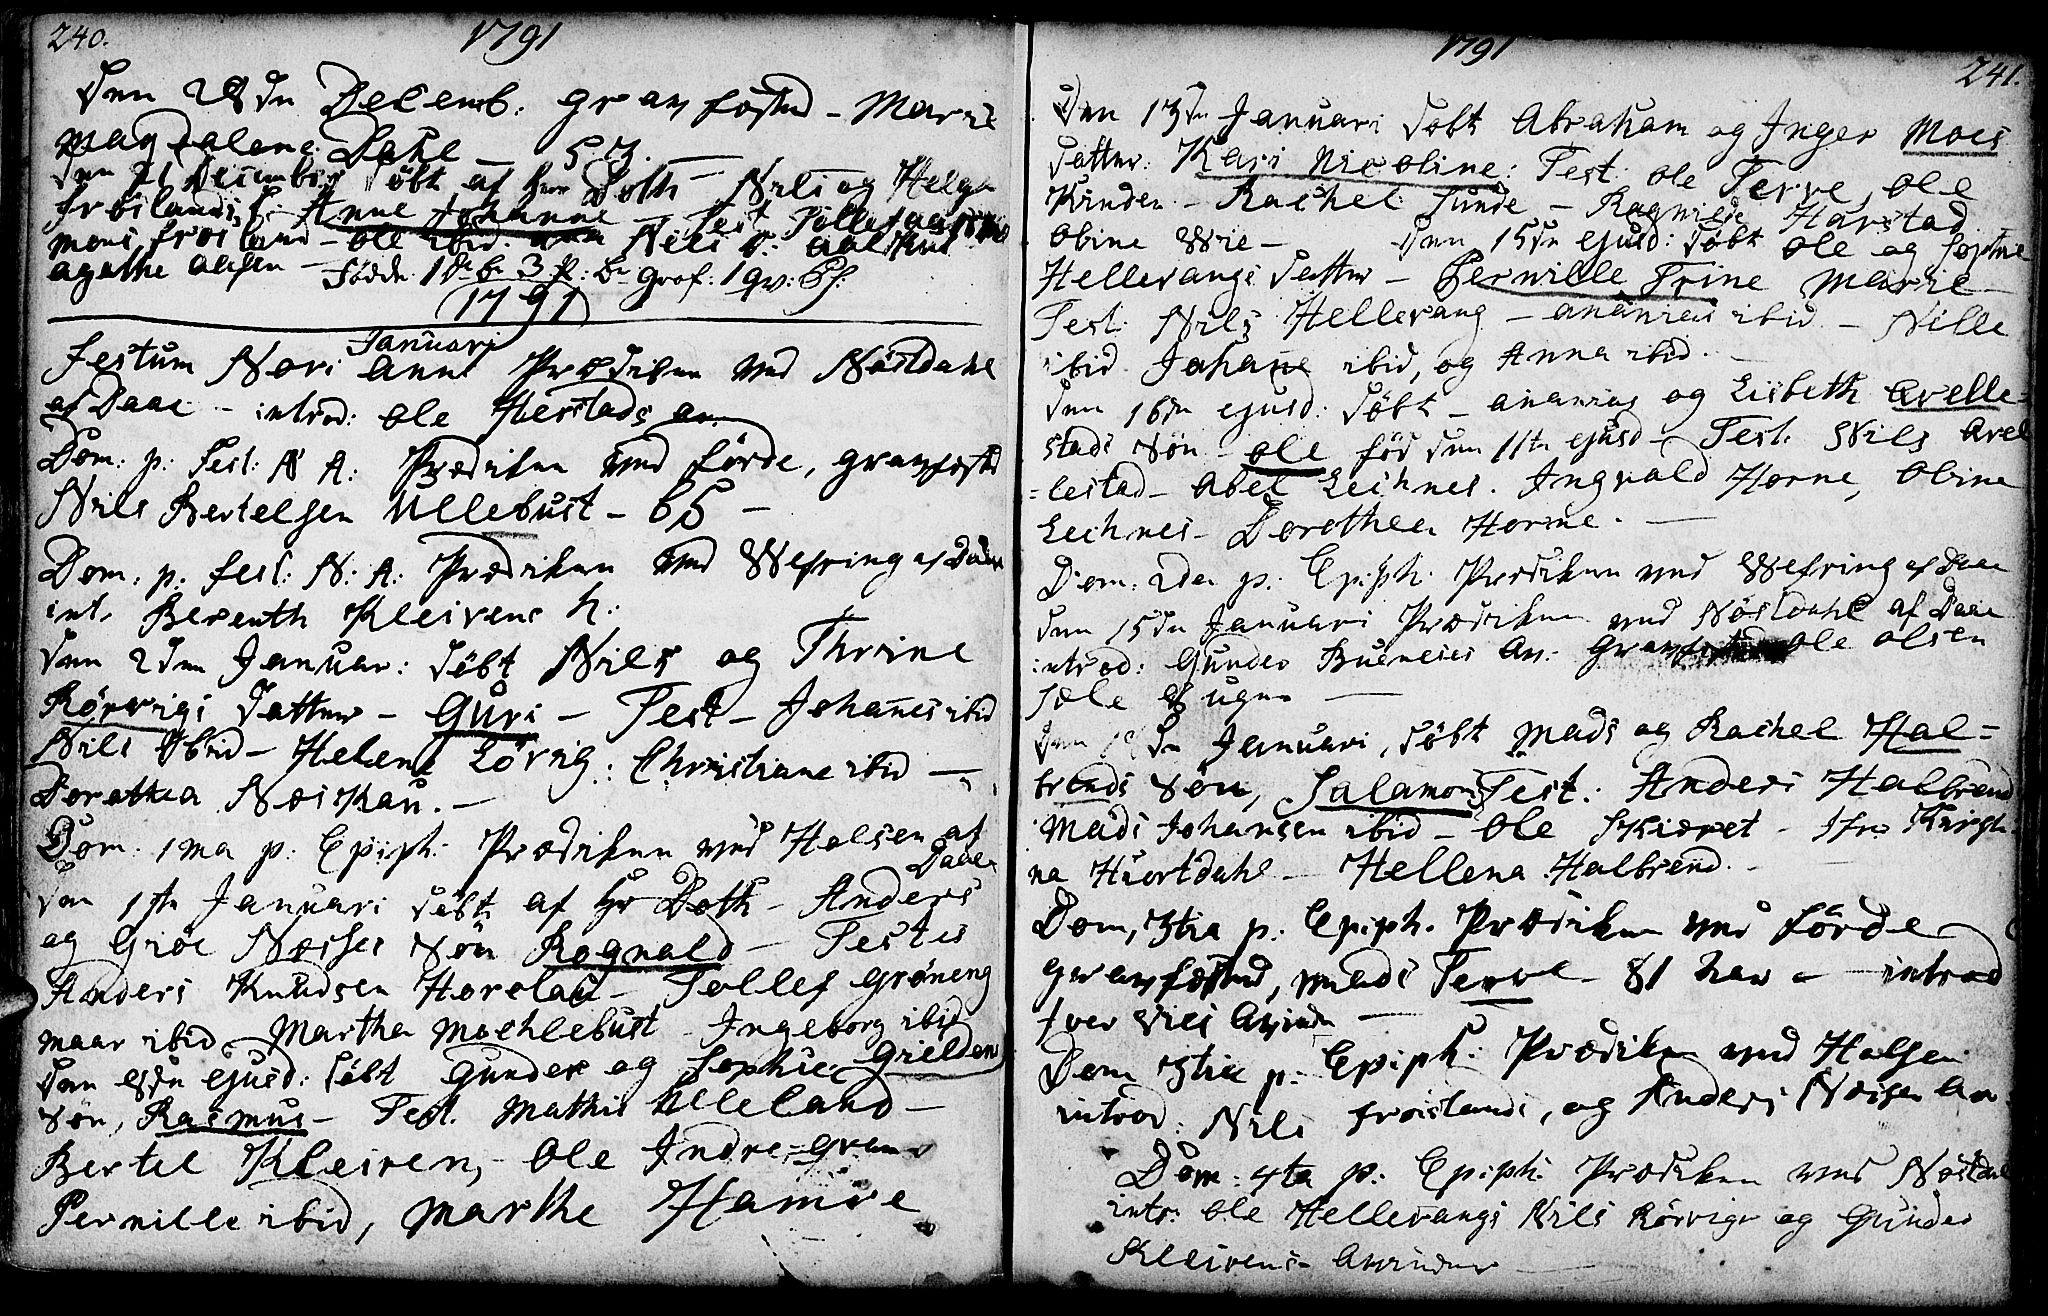 240.
1791
Den 28de Decemb: gravfæsted - Marie
Magdalene Dahl - 53.
Den 21 Decembr døbt af Herr Doth - Nils og Helga
Frøislands D: Anne Johanne - Test Tollef
Mons Frøisland - Ole ibid. Nils
Agathe Aassen - Fødde 1 3 Grof: 1 qv:
1791
Januari
Festum Novi Anni Prædiken ved Nøstdahl
af Daae - introd: Ole Herstads
Dom: p: Fest: N A: Prædiken ved Førde, gravfæsted
Nils Bertelsen Ullebust - 65 -
Dom. p. fest: N: A: Prædiken ved Wefring af Daae
int. Berenth Kleivens K:
Den 2den Januar: døbt Nils og Thrine
Rørvigs datter - Guri - Test - Johanes ibid
Nils Ibid - Helena Lörvig: Christiane ibid -
Dorothea Næskau. -
Dom: 1ma p: Epiph: Prædiken ved Halsen af
Daae
Den Januari døbt af Hr Doth - Anders
og Gröe Næsses Søn Rognald - Testes
Anders Knudsen Horslau - Tollef Grøneng
maar ibid Martha Moehlebust - Ingeborg ibid
Den ejusd: døbt Gunder og Sophie Grielden
Søn, Rasmus - Test. Mathis Ulleland -
Bertel Kleiven, - Ole Indre-Gran
Pernille ibid, Marthe Hamre
1791
241.
Den 13de Januari døbt Abraham og Inger Moes
datter: Kari Nicoline: Test: Ole Terve, Ole
Kinden - Rachel Sunde - Ragnilde Harstad
Oline Wie - Den 15de ejusd: døbt Ole og
Hellevangs datter - Pernille Trine Marie -
Test: Nils Hellevang - Ananias ibid - Nille
ibid Johane ibid, og Anna ibid. -
Den 16de ejusd: døbt - Ananias og Lisbeth Avelle-
stads Søn - Ole fød den 11te ejusd - Test: Nils Avel
=lestad - Abel Leihnes. Ingvald Horne, Oline
Leihnes - Dorothea Horne. -
Dom: 2den p: Epiph: Prædiken ved Wefring af Daae
Den 15de Januari Prædiken ved Nøstdahl af Daae
introd: Gunder Av: Ole Olsen
Sole uger -
Den Januari, døbt Mads og Rachel Hal=
brends Søn, Salamon Test: Anders Halbrend
Mads Johansen ibid - Ole Skieret -
na Hiortdahl - Hellena Halbrend. -
Dom, 3tia p: Epiph. Prædiken ved Førde
gravfæsted, Mads Terve - 81 Aar - introd
Iver -
Dom 3tia p: Epiph: Prædiken ved Halsen
introd: Nils Frøislands, og Anders Næssen
Dom: 4ta p: Epiph: Prædiken ved Nøstdal
intr: Ole Hellevangs Nils Rørvigs og Gunder
Kleivens -